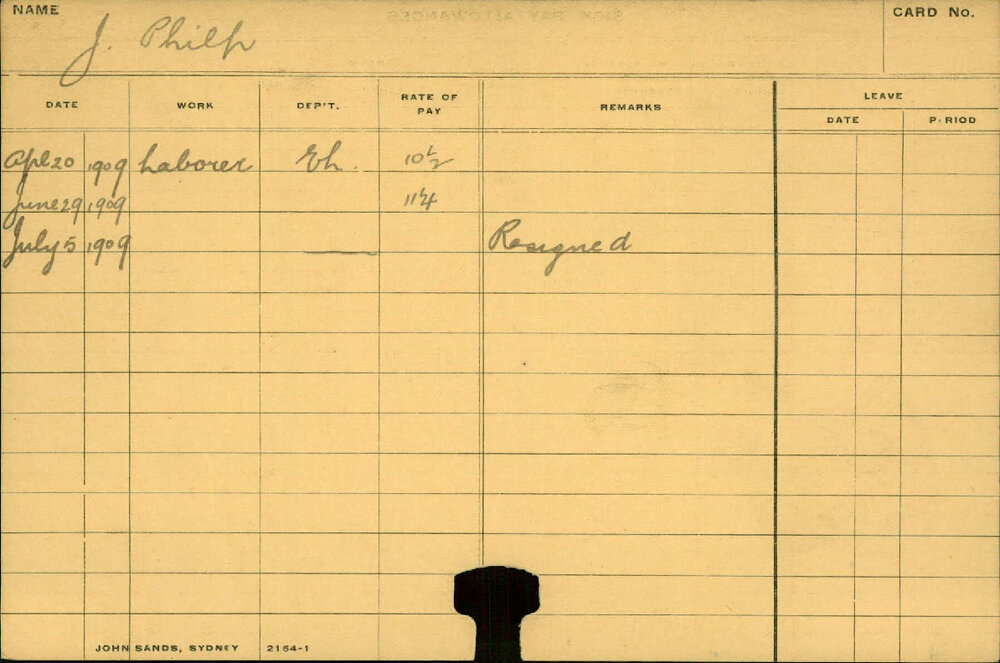 NAME J. Philp CARD No.
DATE WORK DEP'T. RATE OF PAY REMARKS LEAVE
DATE PERIOD
Apl 20 1909 Laborer Eh. 10½
June 29 1909 11¼
July 5 1909 Resigned
JOHN SANDS, SYDNEY 2154-1